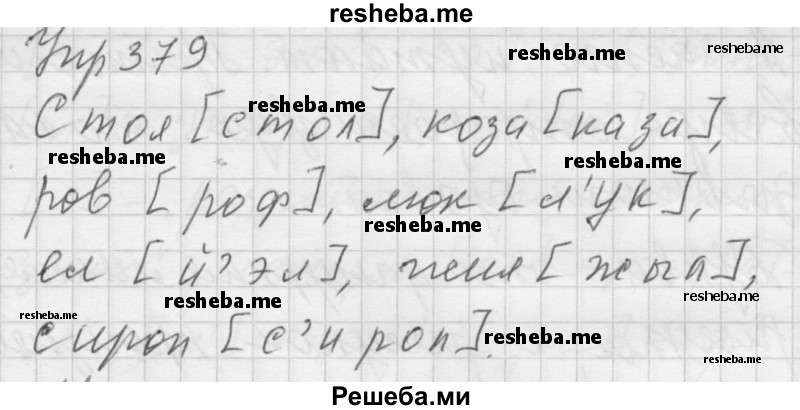 resheba.me
Упр 379
resheba.me
resheba.me
resheba.me
Стол [стол], коза [каза],
resheba.me
resheba.me
ров [роф], люк [л'ук],
resheba.me
ел [й'эл], жил [жыл],
resheba.me
resheba.me
resheba.me
сироп [с'ироп].
resheba.me
resheba.me
Решеба.ми